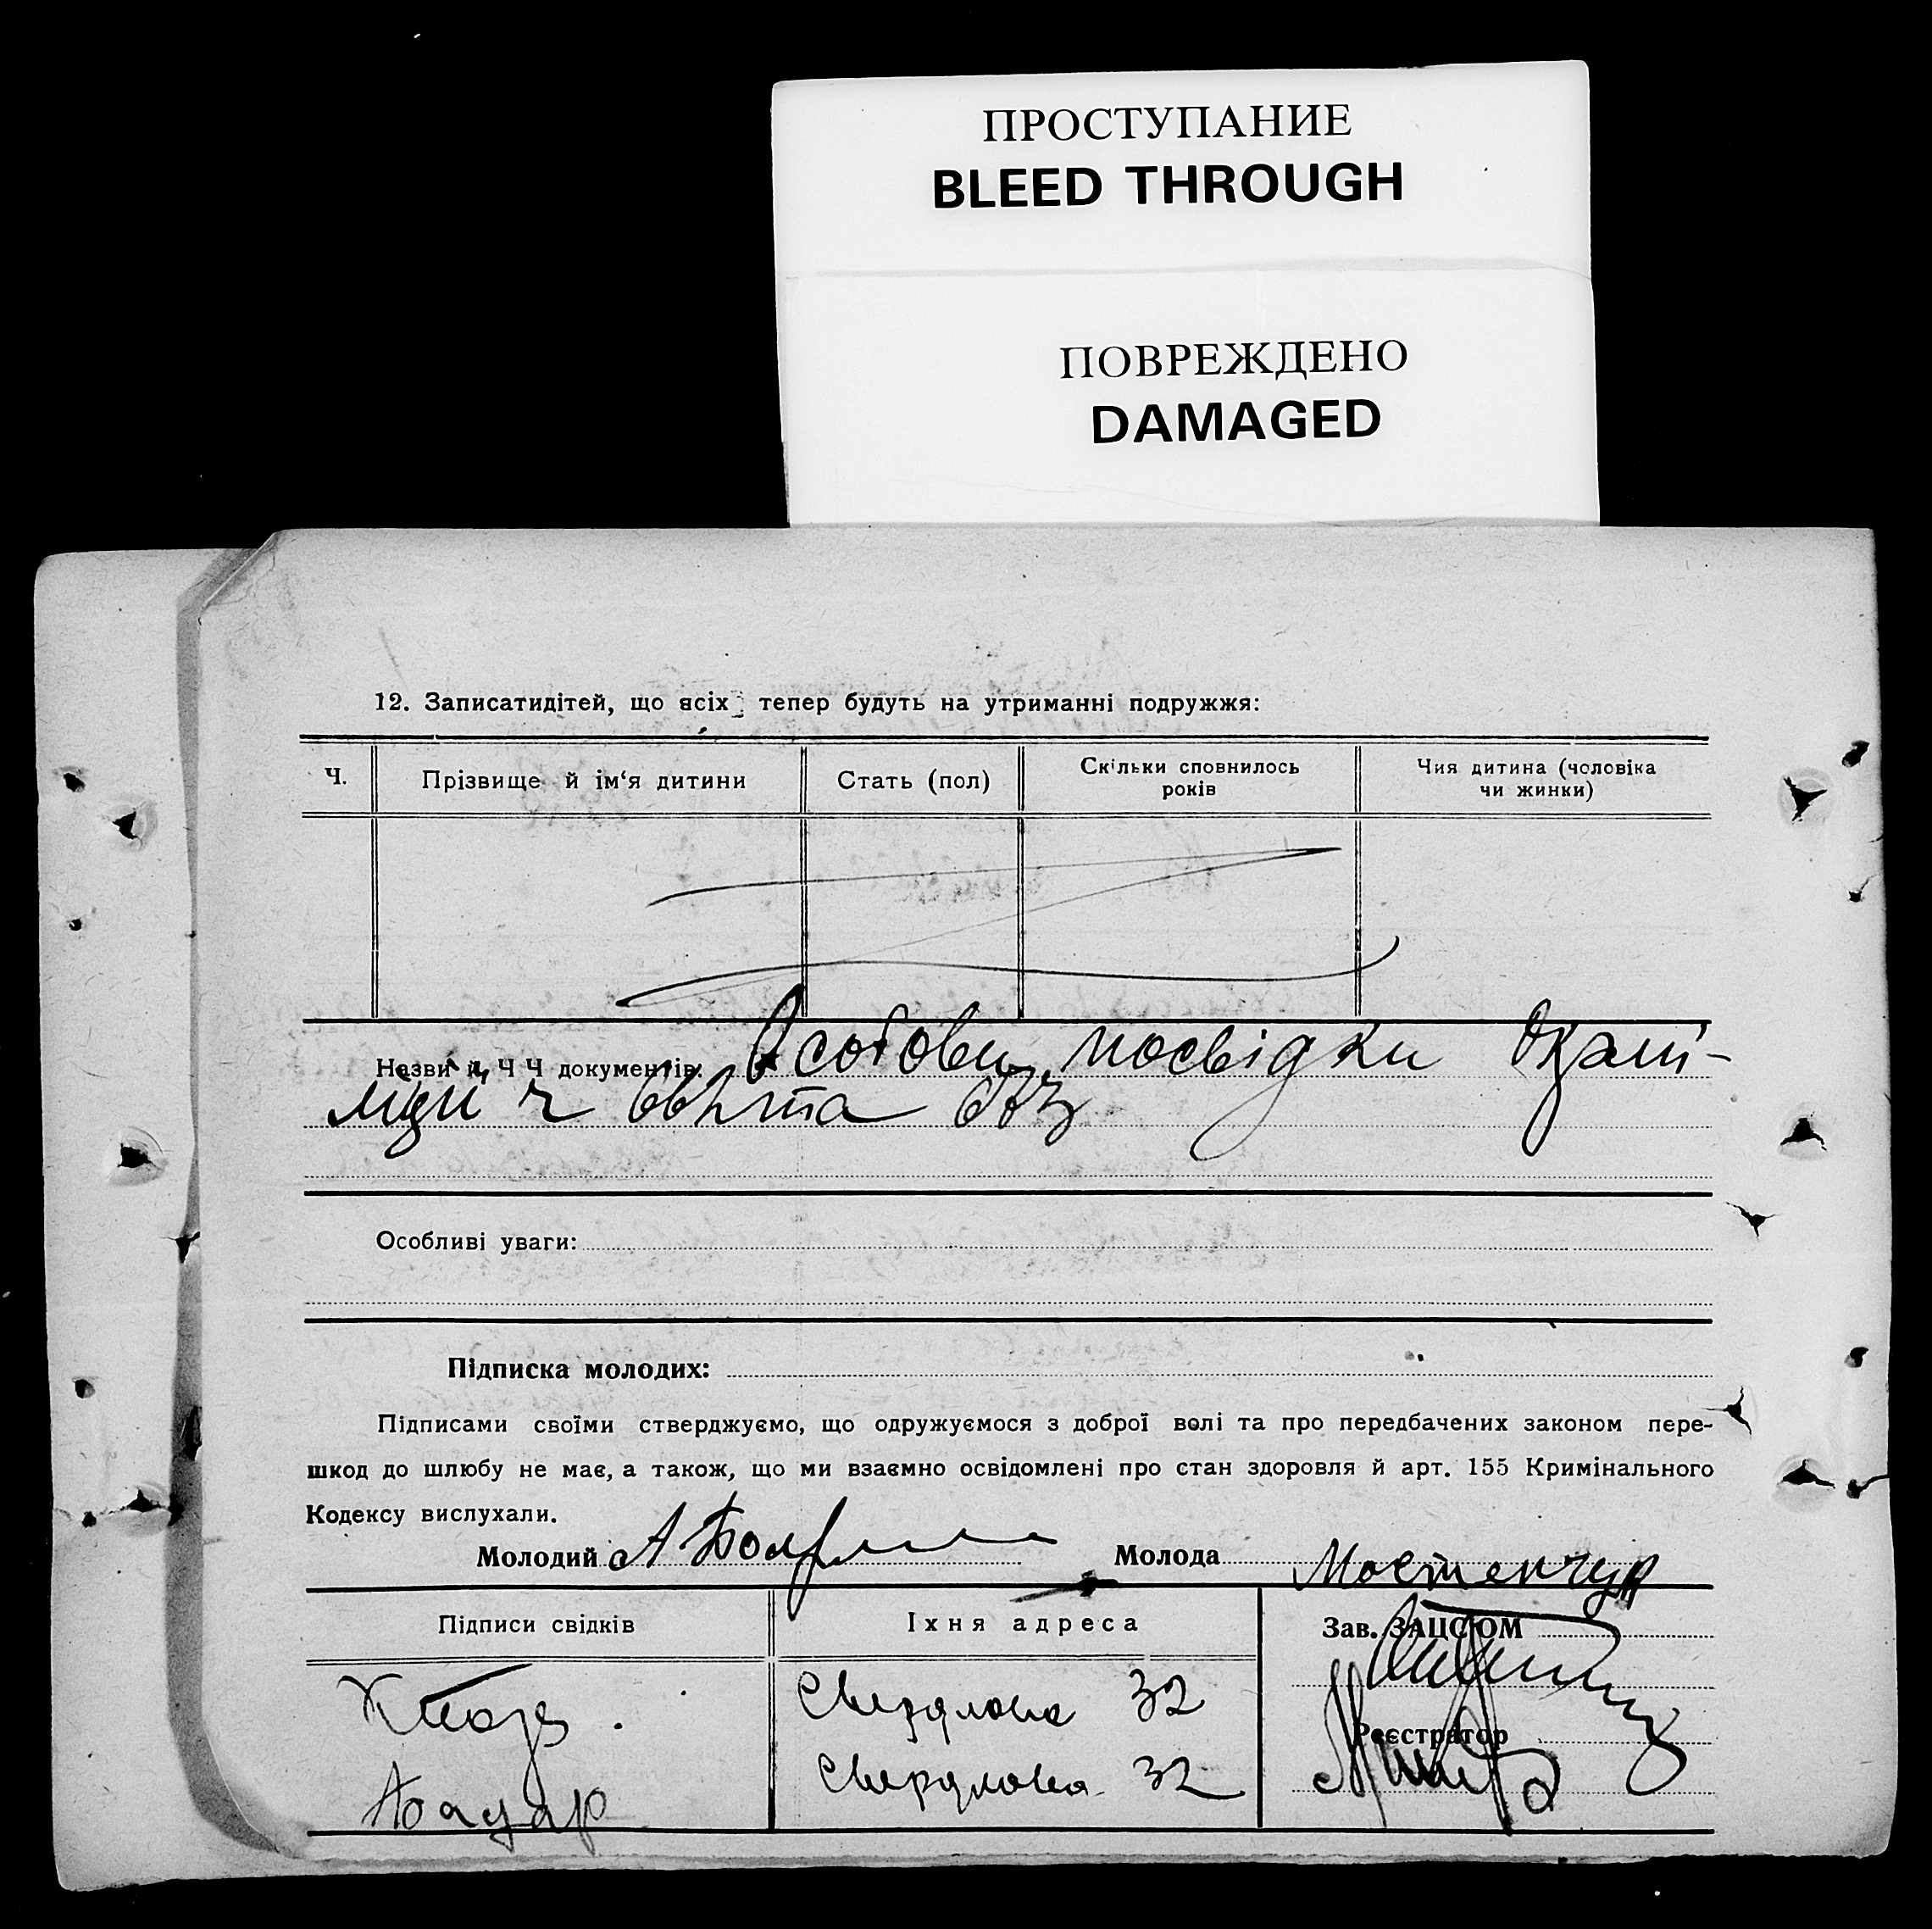 ПРОСТУПАНИЕ
BLEED THROUGH
ПОВРЕЖДЕНО
DAMAGED
12. Записатидітей, що всіх тепер будуть на утриманні подружжя:
Ч.
Прізвище й ім‘я дитини
Стать (пол)
Скільки сповнилось
років
Чия дитина (чоловіка
чи жинки)
Назви й Ч Ч документів: Особови посвідки
та
Особливі уваги:
Підписка молодих:
Підписами своїми стверджуємо, що одружуємося з доброї волі та про передбачених законом пере-
шкод до шлюбу не має, а також, що ми взаємно освідомлені про стан здоровля й арт. 155 Кримінального
Кодексу вислухали.
Молодий А
Молода
Підписи свідків
Їхня адреса
Зав. ЗАЦСОМ
Свердлова 32
Реєстратор
Свердлова 32